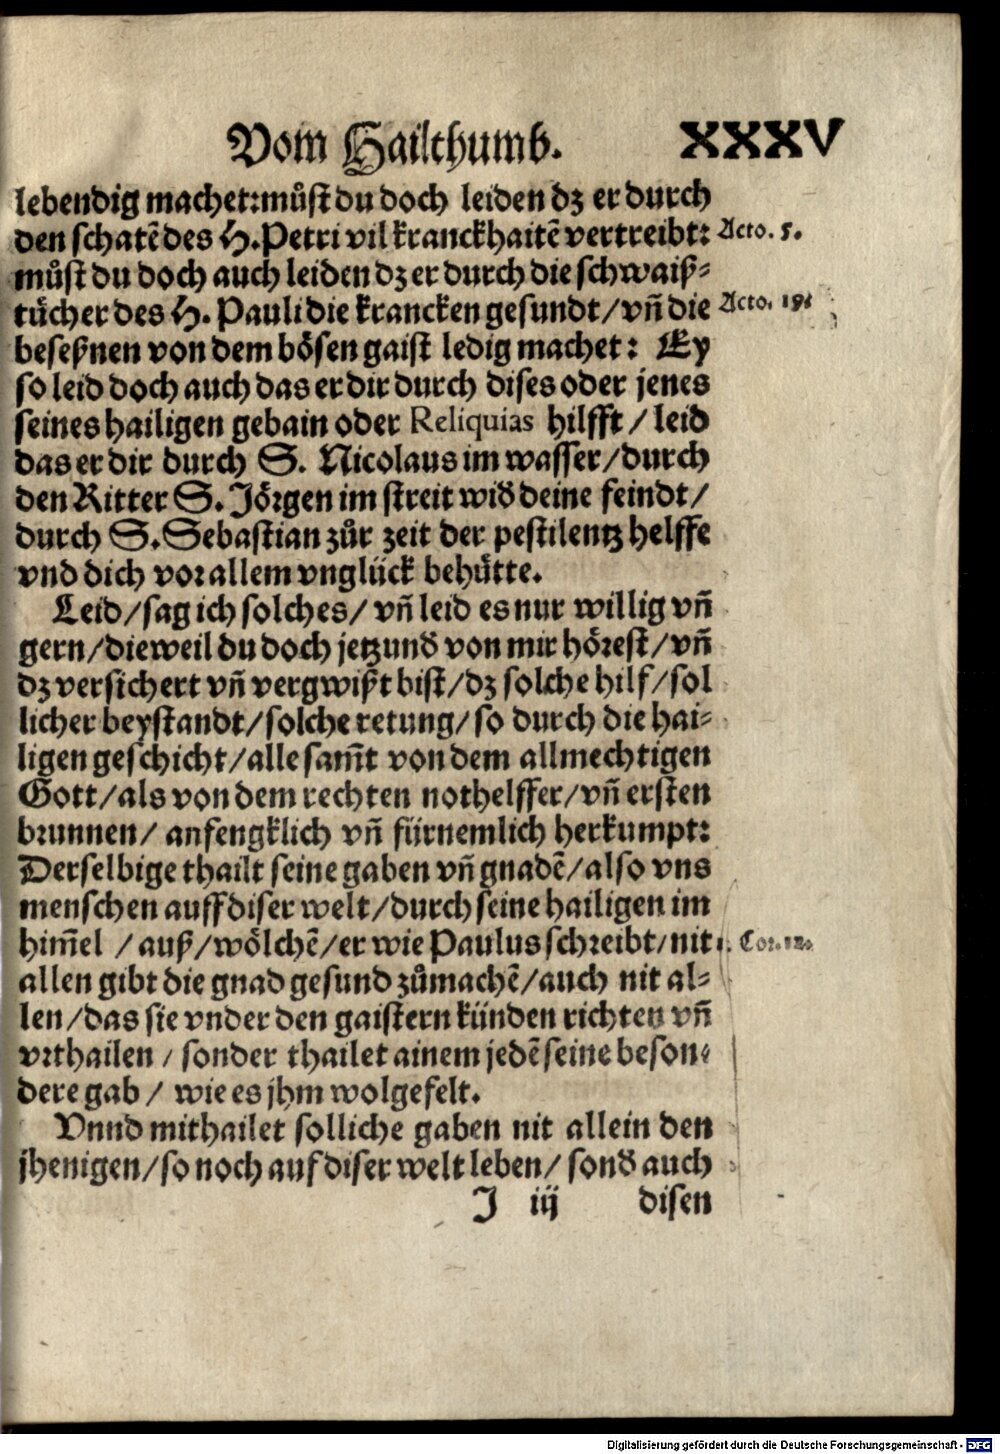 Vom Hailthumb. XXXV
lebendig machet: můst du doch leiden dz er durch
den schatē des H. Petri vil kranckhaitē vertreibt: Acto. 5.
můst du doch auch leiden dz er durch die schwaiß⸗
tücher des H. Pauli die krancken gesundt/ vñ die Acto. 19.
beseßnen von dem bösen gaist ledig machet: Ey
so leid doch auch das er dir durch dises oder jenes
seines hailigen gebain oder Reliquias hilfft/ leid
das er dir durch S. Nicolaus im wasser/ durch
den Ritter S. Jörgen im streit wid deine feindt/
durch S. Sebastian zůr zeit der pestilentz helffe
vnd dich vor allem vnglück behůtte.
Leid/ sag ich solches/ vñ leid es nur willig vñ
gern/ dieweil du doch jetzund von mir hörest/ vñ
dz versichert vñ vergwißt bist/ dz solche hilf/ sol
licher beystandt/ solche retung/ so durch die hai⸗
ligen geschicht/ alle sam̄t von dem allmechtigen
Gott/ als von dem rechten nothelffer/ vñ ersten
brunnen/ anfengklich vñ fürnemlich herkumpt:
Derselbige thailt seine gaben vñ gnadē/ also vns
menschen auff diser welt/ durch seine hailigen im
him̄el / auß/ wölchē/ er wie Paulus schreibt/ nit 1. Cor. 12.
allen gibt die gnad gesund zůmachē/ auch nit al⸗
len/ das sie vnder den gaistern künden richten vñ
vrthailen / sonder thailet ainem jedē seine beson⸗
dere gab / wie es jhm wolgefelt.
Vnnd mithailet solliche gaben nit allein den
jhenigen/ so noch auf diser welt leben/ sond auch
J iij disen
Digitalisierung gefördert durch die Deutsche Forschungsgemeinschaft - DFG